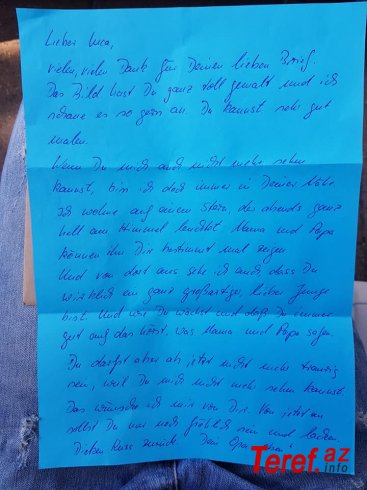 Lieber Luca,
vielen, vielen Dank für Deinen lieben Brief.
Das Bild hast Du ganz toll gemalt und ich
schaue es so gern an. Du kannst sehr gut
malen.
Wenn Du mich auch nicht mehr sehen
kannst, bin ich doch immer in Deiner Nähe
Ich wohne auf einem Stern, der abends ganz
hell am Himmel leuchtet. Mama und Papa
können ihn Dir bestimmt mal zeigen
Und von dort aus sehe ich auch dass Du
wirklich ein ganz großartiger, lieber Junge
bist. Und wie Du wächst und daß Du immer
gut auf das hörst, was Mama und Papa sagen.
Du darfst aber ab jetzt nicht mehr traurig
sein, weil Du mich nicht mehr sehen kannst.
Das wünsche ich mir von Dir. Von jetzt an
sollst Du nur noch fröhlich sein und lachen
Dicken Kuss zurück Dein Opa
Teref.az
.info